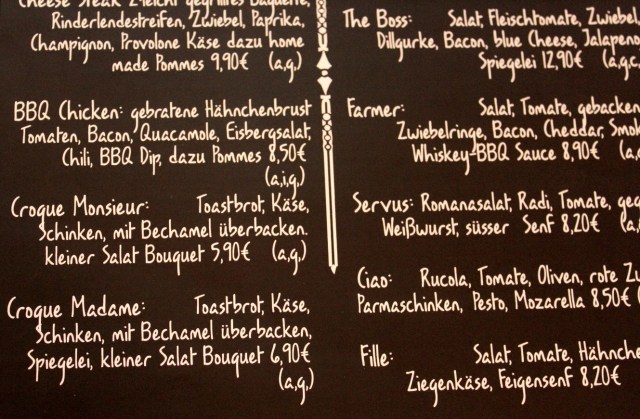 Cheese Steak 2-leicht gegrilltes Baguette,
Rinderlendestreifen, Zwiebel, Paprika,
Champignon, Provolone Käse dazu home
made Pommes 9,90€ (a,g,)
BBQ Chicken: gebratene Hähnchenbrust
Tomaten, Bacon, Quacamole, Eisbergsalat,
Chili, BBQ Dip, dazu Pommes 8,50€
(a,i,g,)
Croque Monsieur: Toastbrot, Käse,
Schinken, mit Bechamel überbacken.
kleiner Salat Bouquet 5,90€ (a,g,)
Croque Madame: Toastbrot, Käse,
Schinken, mit Bechamel überbacken,
Spiegelei, kleiner Salat Bouquet 6,90€
(a,g,)
The Boss: Salat, Fleischtomate, Zwiebel
Dillgurke, Bacon, blue Cheese, Jalapeno
Spiegelei 12,90€ (a,g,c,
Farmer: Salat, Tomate, gebacken
Zwiebelringe, Bacon, Cheddar, Smok
Whiskey-BBQ Sauce 8,90€ (a,
Servus: Romanasalat, Radi, Tomate, geg
Weißwurst, süsser Senf 8,20€ (a,
Ciao: Rucola, Tomate, Oliven, rote Zw
Parmaschinken, Pesto, Mozarella 8,50€ (
Fille: Salat, Tomate, Hähnche
Ziegenkäse, Feigensenf 8,20€